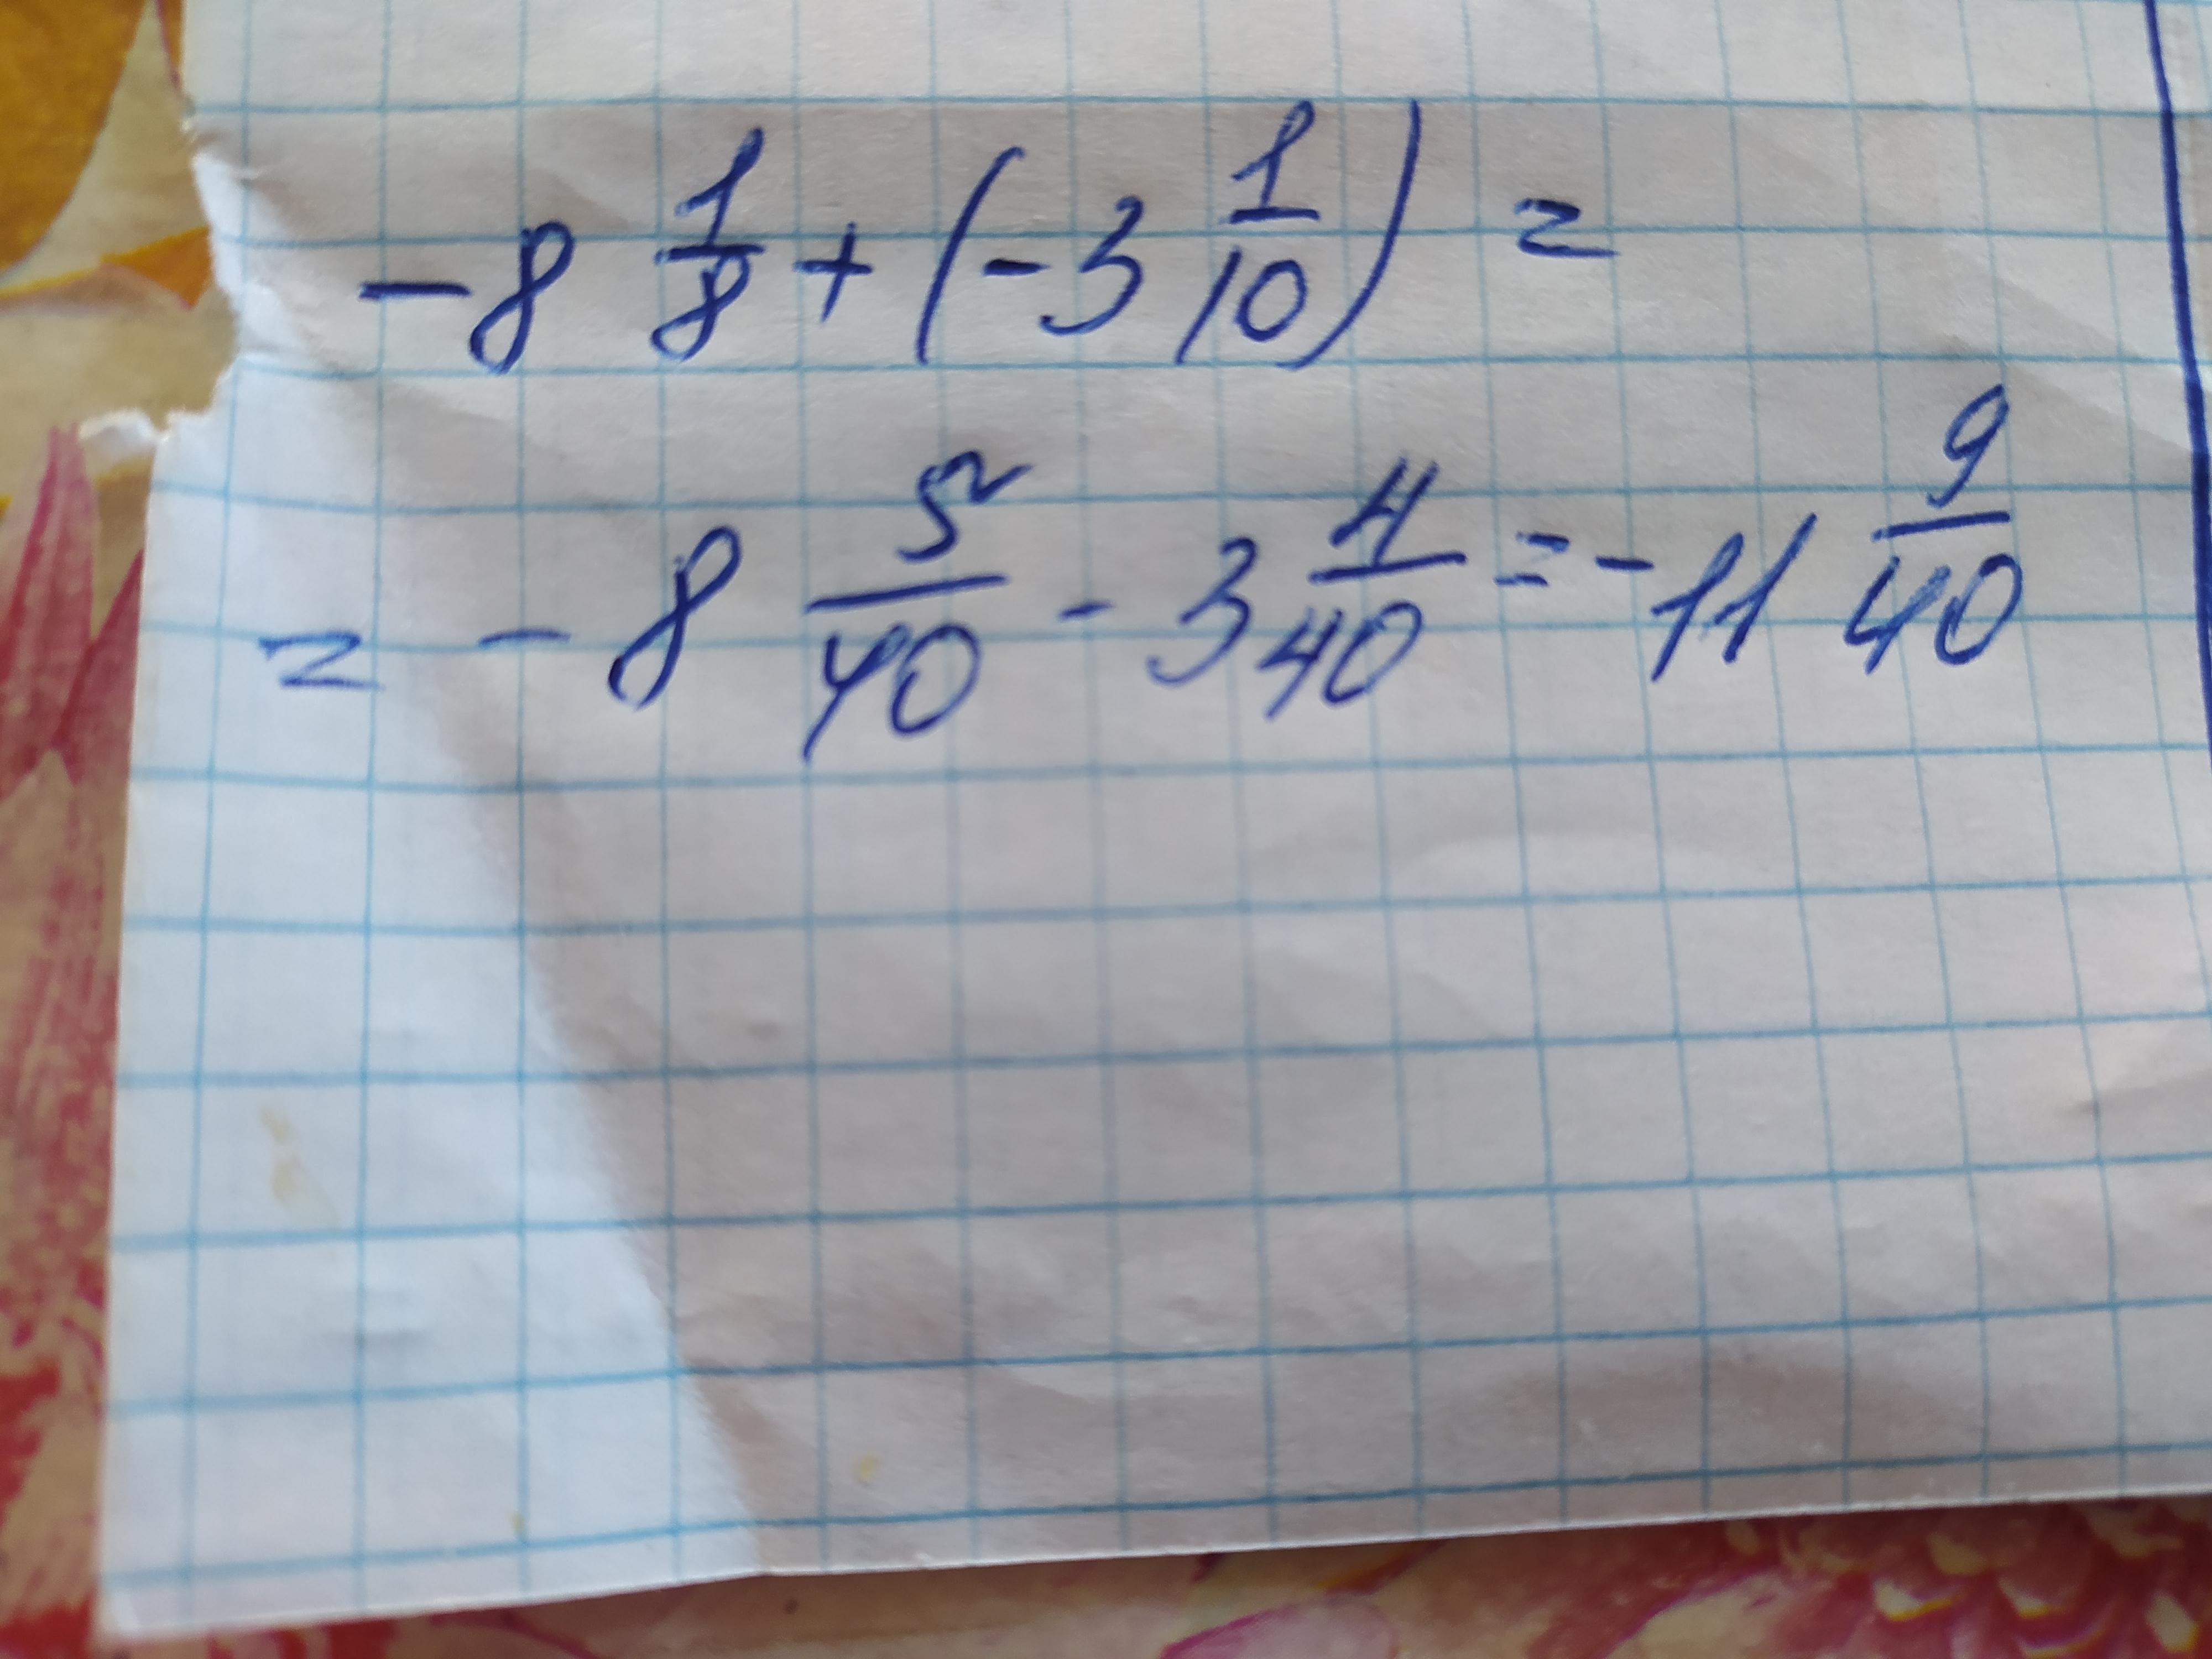 -8 1/8 + (-3 1/10) =
= -8 5/40 - 3 4/40 = -11 9/40